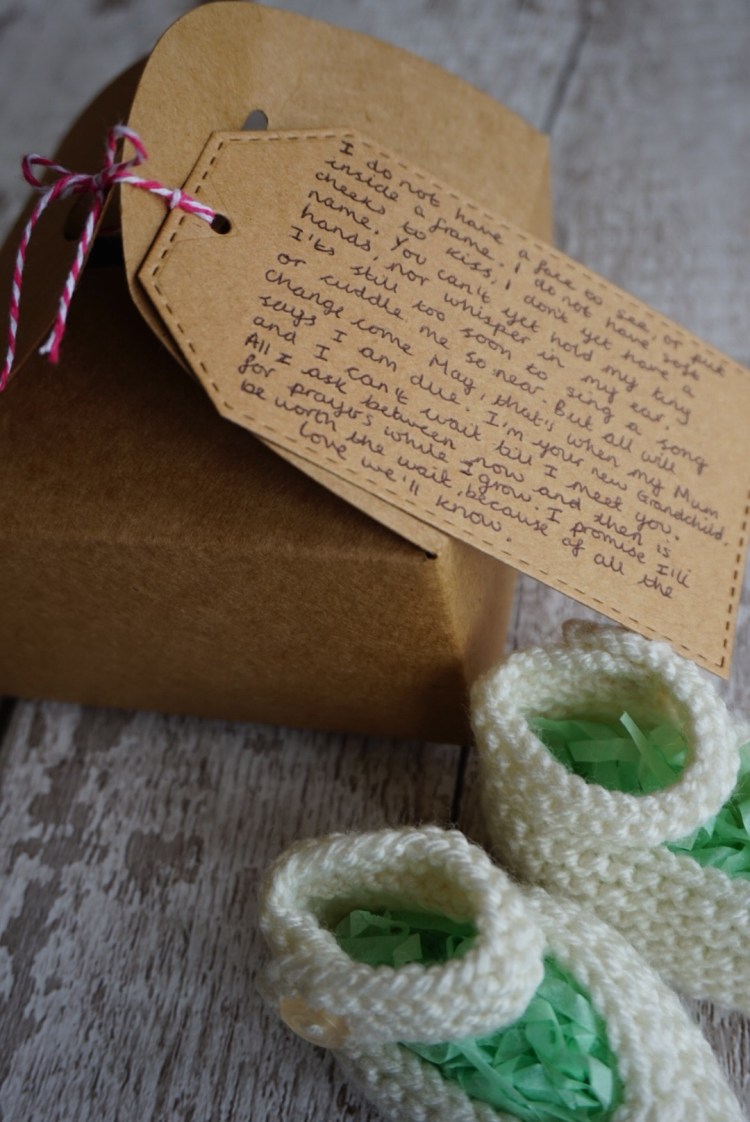 I do not have a face to see or put
inside a frame. I do not have soft
cheeks to kiss, I don't yet have a
name. You can't yet hold my tiny
hands, nor whisper in my ear.
I'ts still too soon to sing a song
or cuddle me so near. But all will
change come May, that's when my Mum
says I am due. I'm your new Grandchild.
and I can't wait till I meet you.
All I ask between now and then is
for prayers while I grow. I promise I'll
be worth the wait, because of all the
love we'll know.